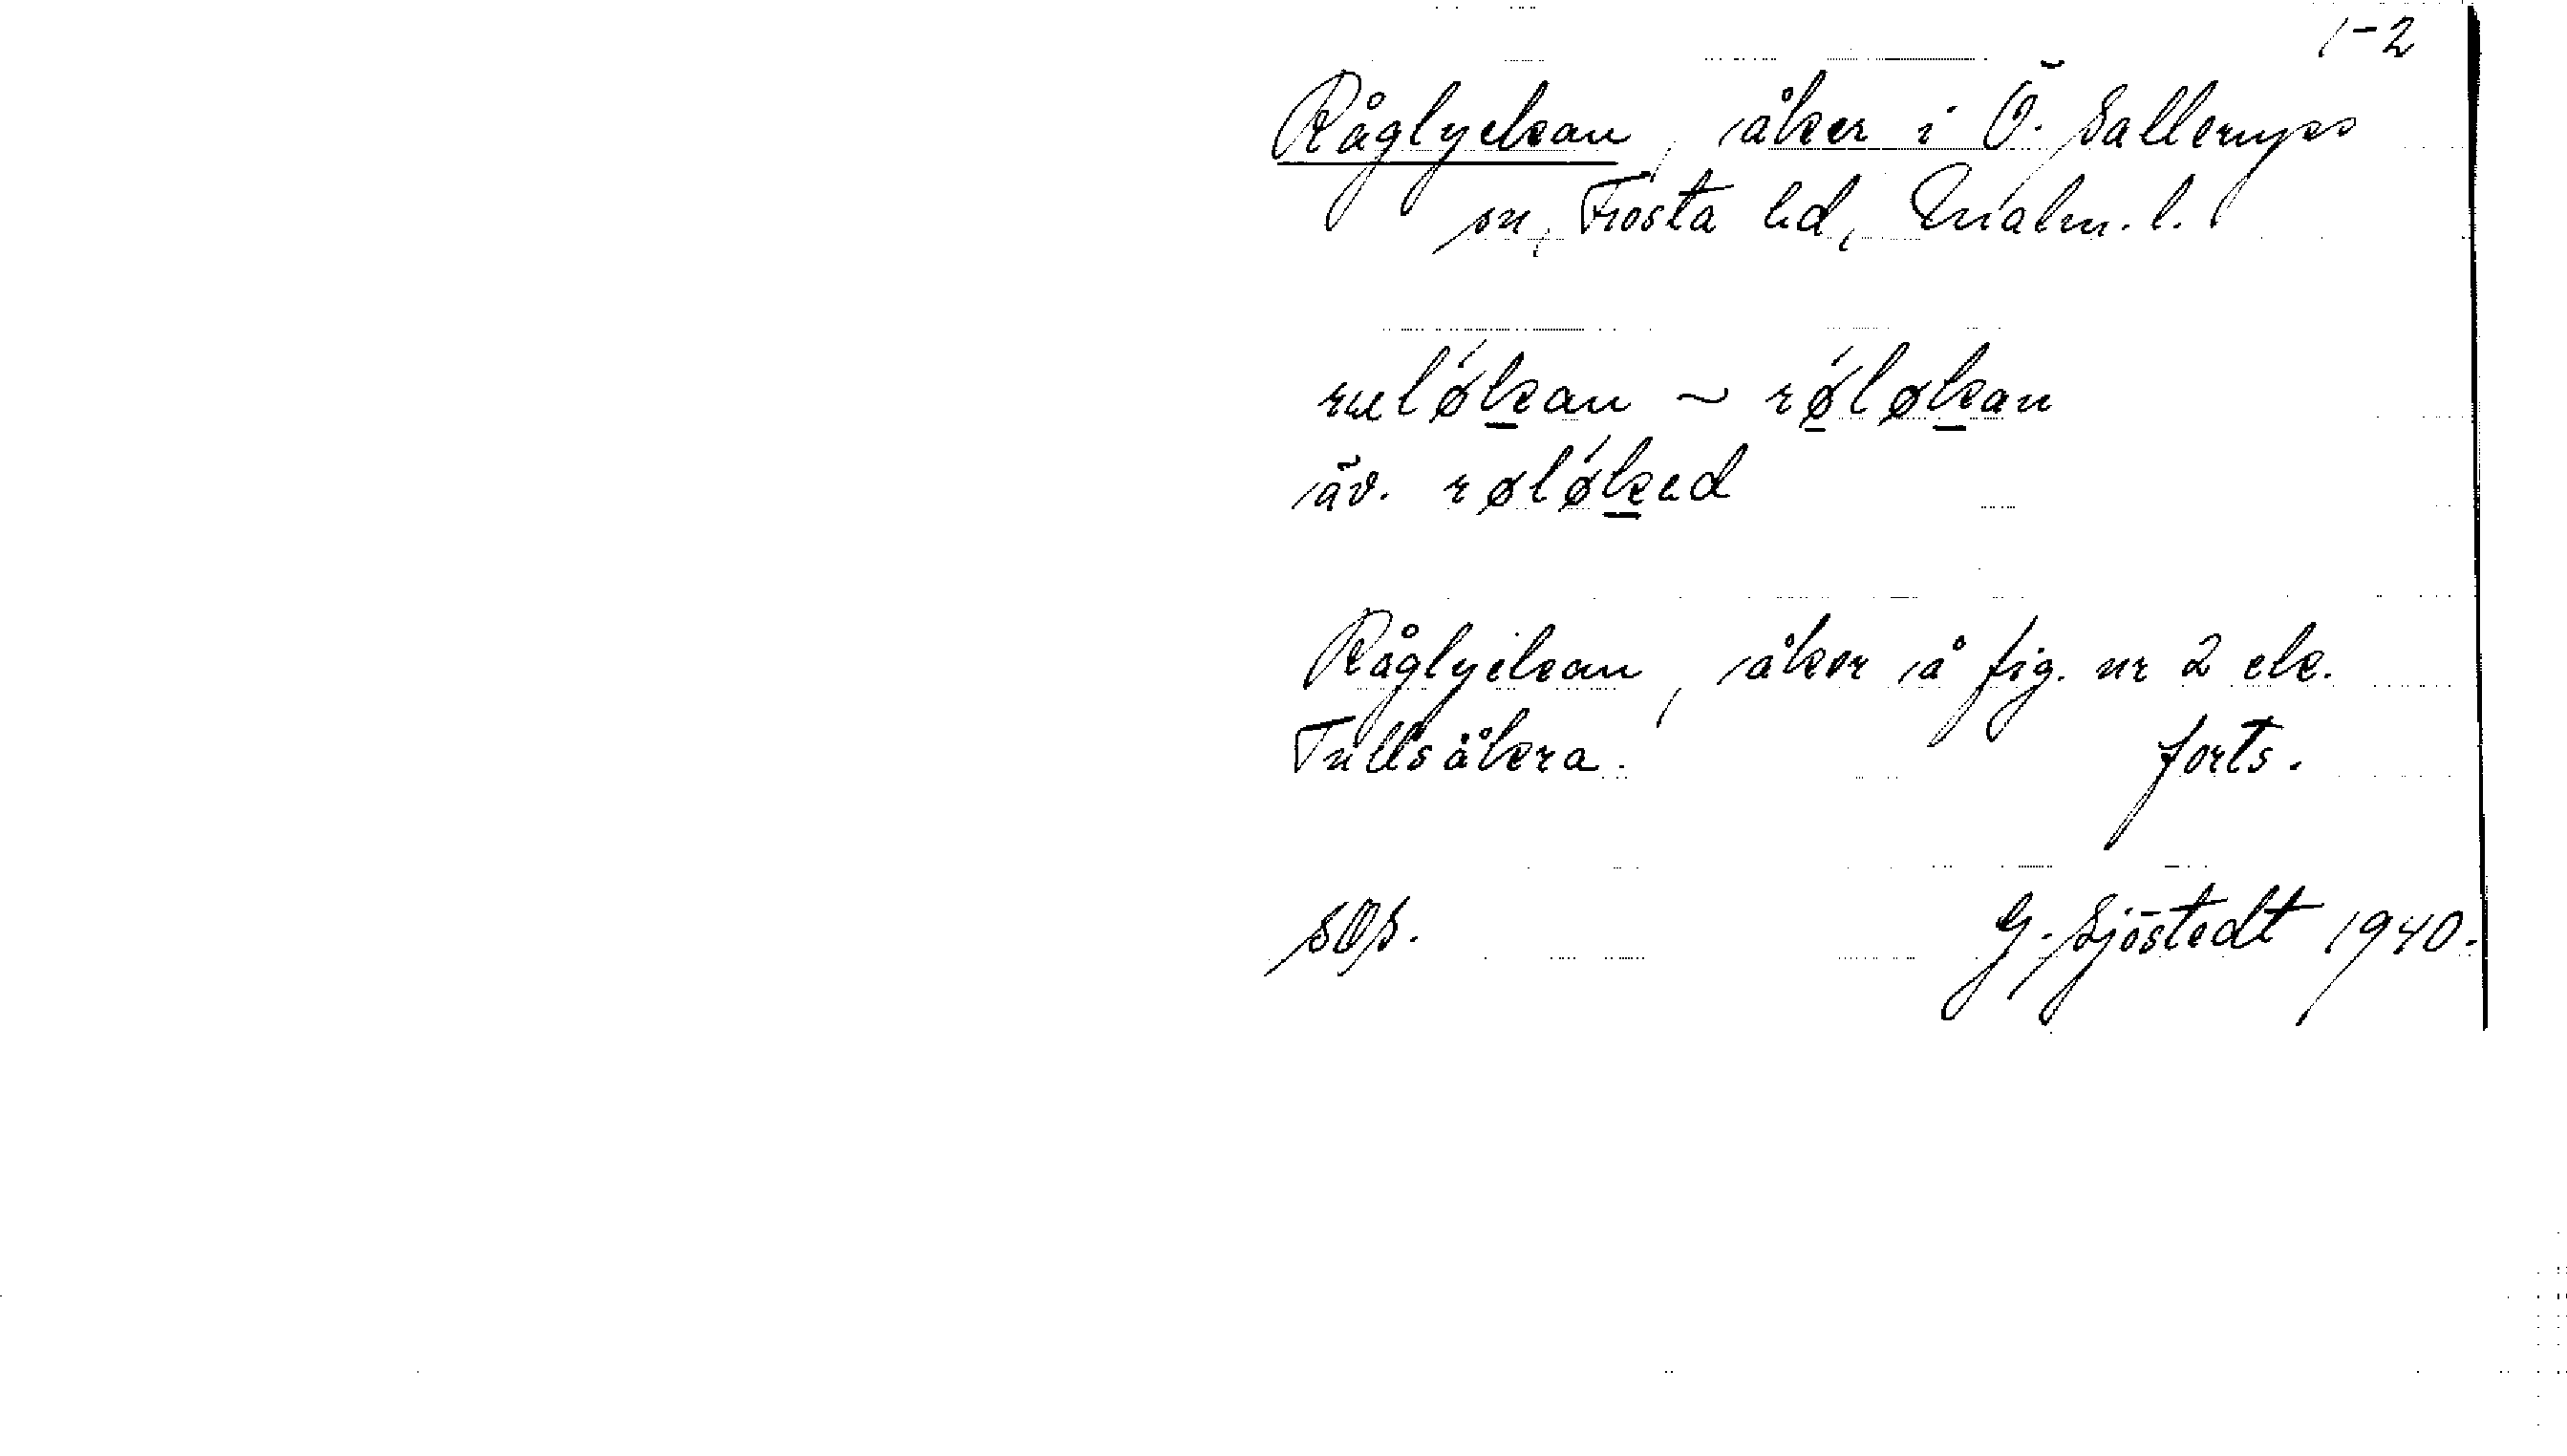 1-2
Råglyckan, åker i Ö. Sallerups
sn, Frosta hd, Malm. l.
ruló̱kan ~ rǿ̱løkan
äv. røløked
Råglyckan, åker å fig. nr 2 ek.
Tullsåkra. forts.
SOS. G. Sjöstedt 1940.